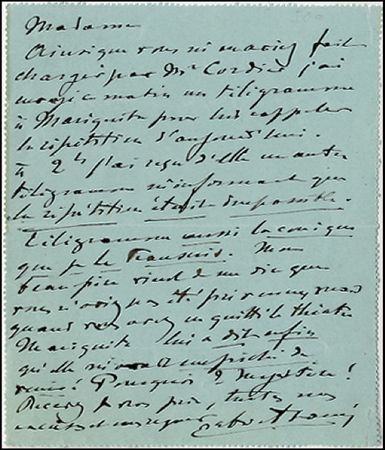 Madame
Ainsi que vous m'aviez fait
charger par Mr Cordier j'ai
ce matin un télégramme
à Mariquita pour lui rappeler
la répétition d'aujourd'hui.
à 2h j'ai reçu d'elle un autre
télégramme m'informant que
la répétition était impossible.
Télégramme aussi laconique
que je le transmis. Mon
beau père vient de me dire que
vous n'aviez pas été prévenue
quand vous avez quitté le théâtre
Mariquita lui a dit enfin
qu'elle m'avait empêché de
venir! Pourquoi ce mystère!
Recevez je vous prie, toutes mes
excuses